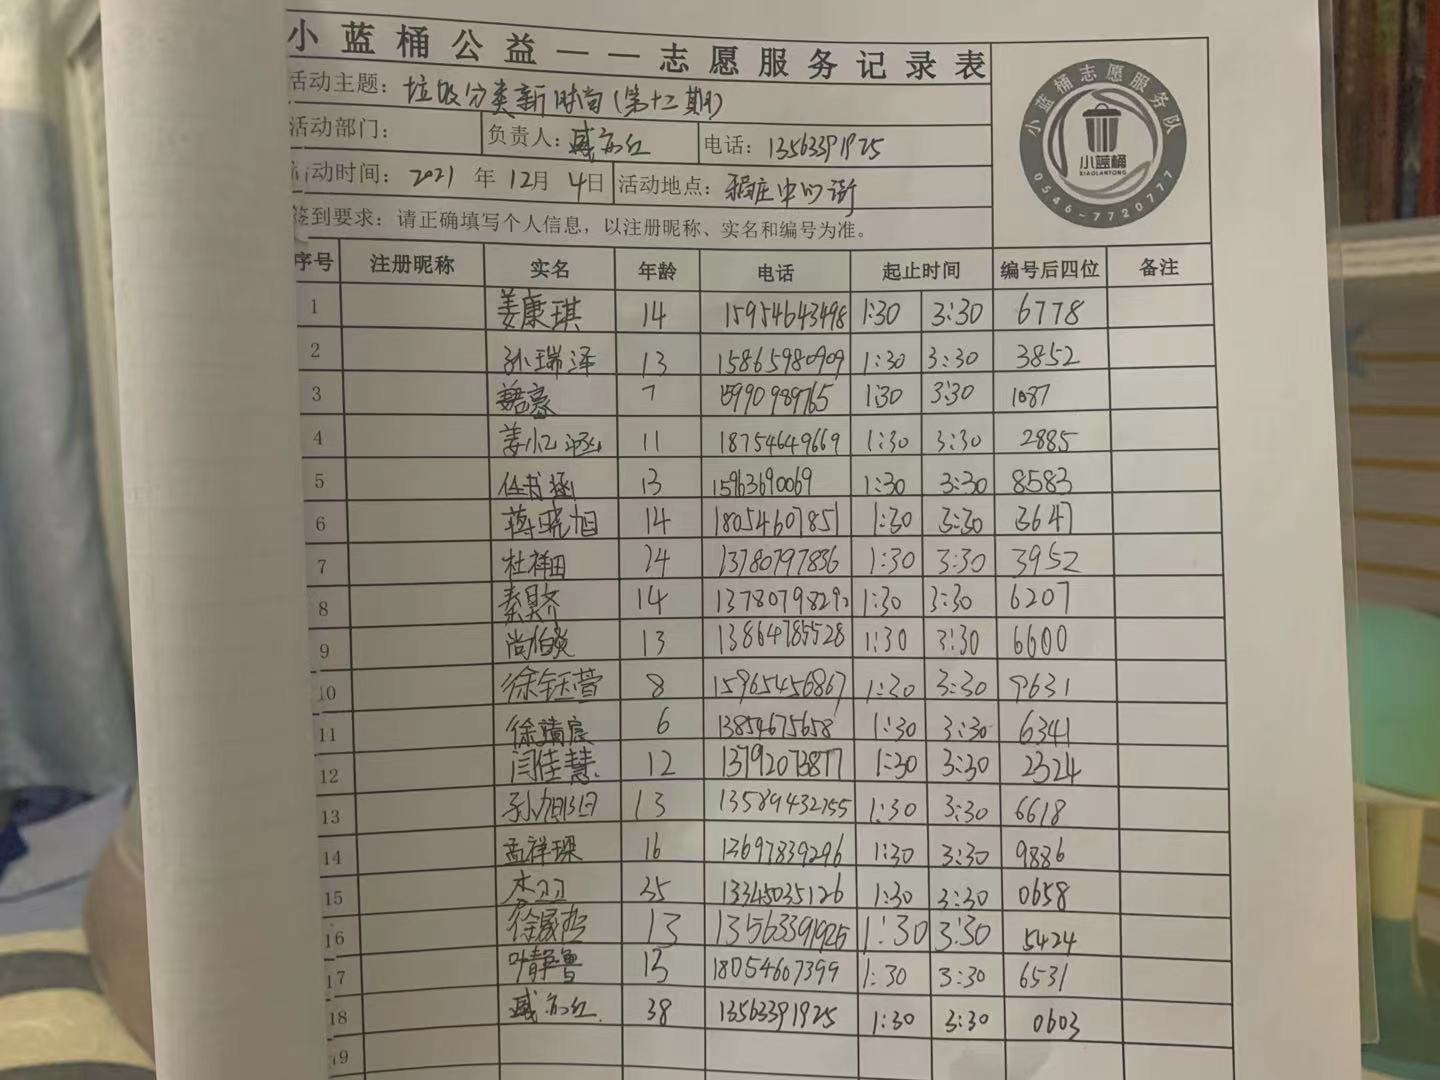 小蓝桶公益——志愿服务记录表
活动主题：垃圾分类新时尚(第十二期)
活动部门： 负责人：臧 红 电话：13563391925
活动时间：2021年12月4日 活动地点： 庄中心街
签到要求：请正确填写个人信息，以注册昵称、实名和编号为准。
小蓝桶志愿服务队
小蓝桶
XIAOLANTONG
0546-7720777
序号 注册昵称 实名 年龄 电话 起止时间 编号后四位 备注
1 姜康琪 14 15954643498 1:30 3:30 6778
2 孙瑞泽 13 15865980909 1:30 3:30 3852
3 7 15990989765 1:30 3:30 1087
4 姜忆涵 11 18754649669 1:30 3:30 2885
5 任书涵 13 15963690069 1:30 3:30 8583
6 蒋晓旭 14 18054607851 1:30 3:30 3647
7 杜祥田 14 13780797836 1:30 3:30 3952
8 秦 14 13780798292 1:30 3:30 6207
9 尚柏炎 13 13864785528 1:30 3:30 6600
10 徐钰萱 8 15965456867 1:30 3:30 9631
11 徐 宸 6 13854675658 1:30 3:30 6341
12 闫佳慧 12 13792073877 1:30 3:30 2324
13 孙旭阳 13 13589432755 1:30 3:30 6618
14 孟祥琛 16 13697839296 1:30 3:30 9886
15 李 35 13345035126 1:30 3:30 0658
16 徐晟哲 13 13563391925 1:30 3:30 5424
17 叶静鲁 13 18054607399 1:30 3:30 6531
18 臧 红 38 13563391925 1:30 3:30 0603
19